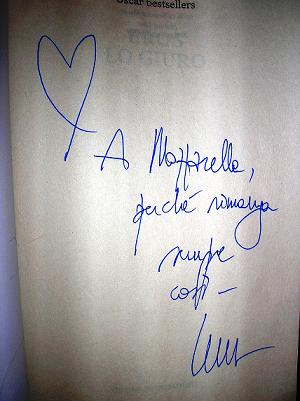 Oscar bestsellers
EROS
LO GIURO
A Mozzarella,
perché rimanga
sempre
così -